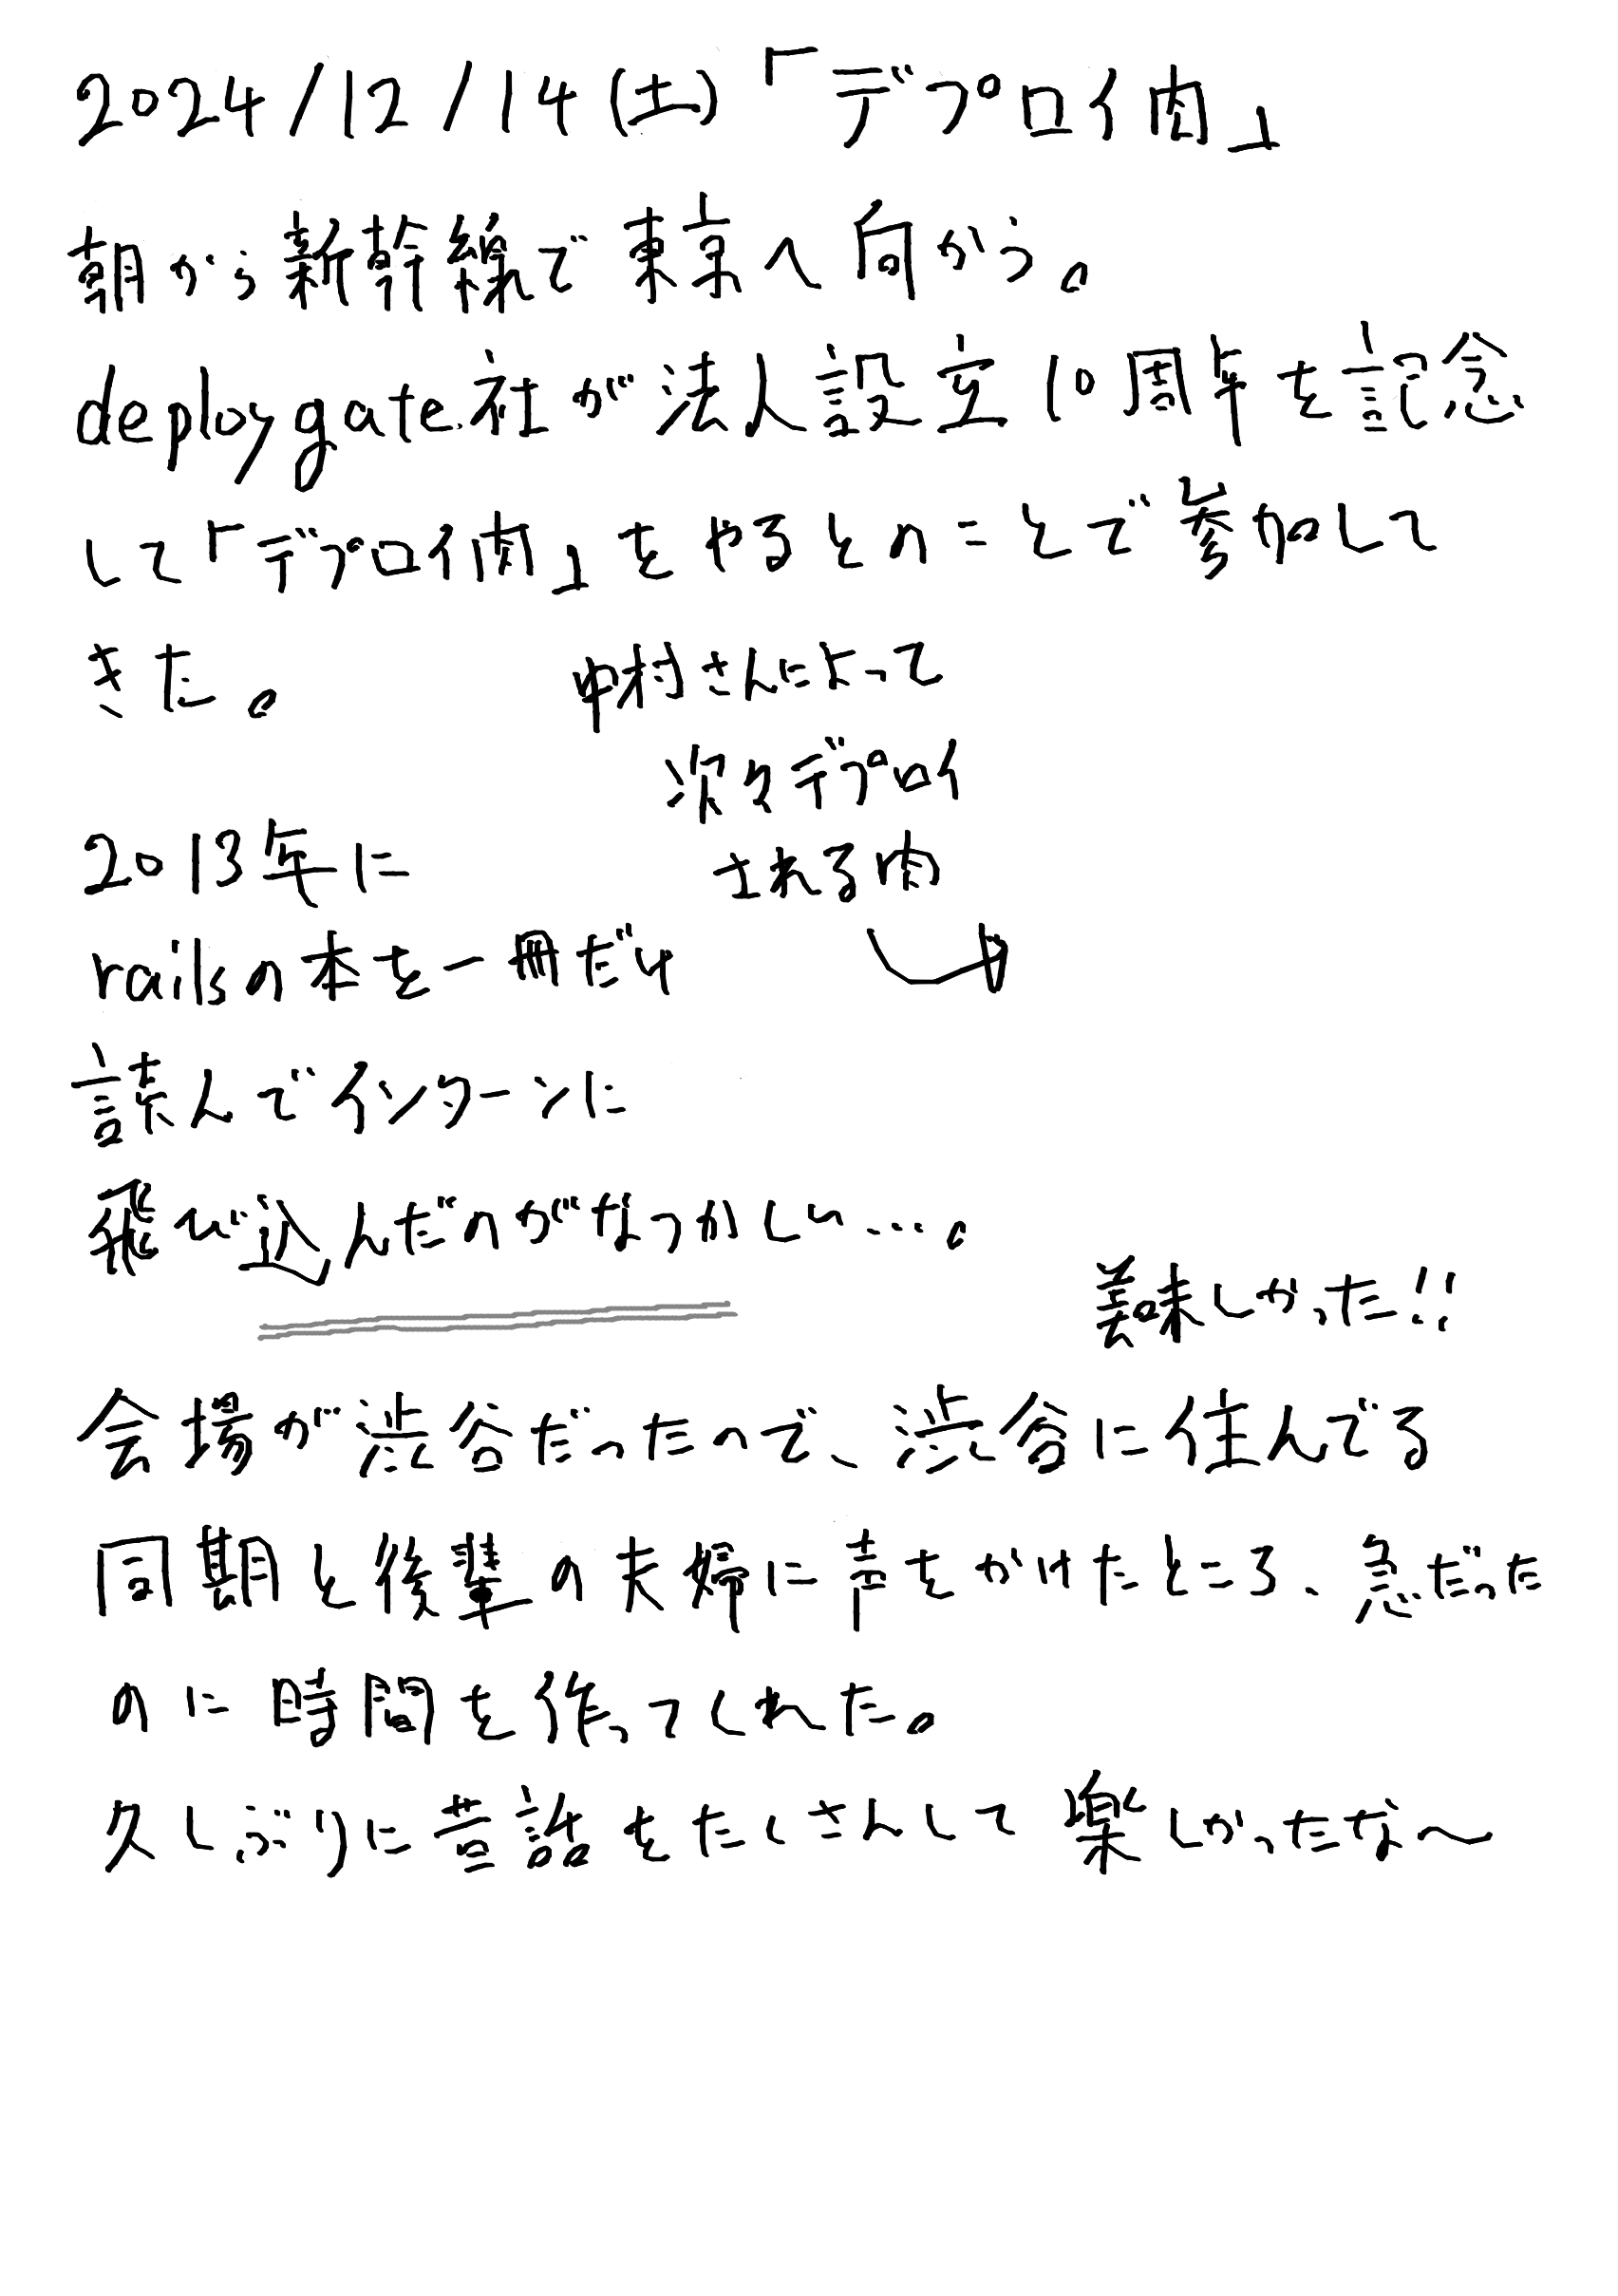 2024/12/14(土)「デプロイ肉」
朝から新幹線で東京へ向かう。
deploygate社が法人設立10周年を記念
して「デプロイ肉」をやるとのことで参加して
きた。
中村さんによって
次々デプロイ
される肉
2013年に
railsの本を一冊だけ
読んでインターンに
飛び込んだのがなつかしい…。
美味しかった!!
会場が渋谷だったので、渋谷に住んでる
同期と後輩の夫婦に声をかけたところ、急だった
のに時間を作ってくれた。
久しぶりに昔話をたくさんして楽しかったな〜